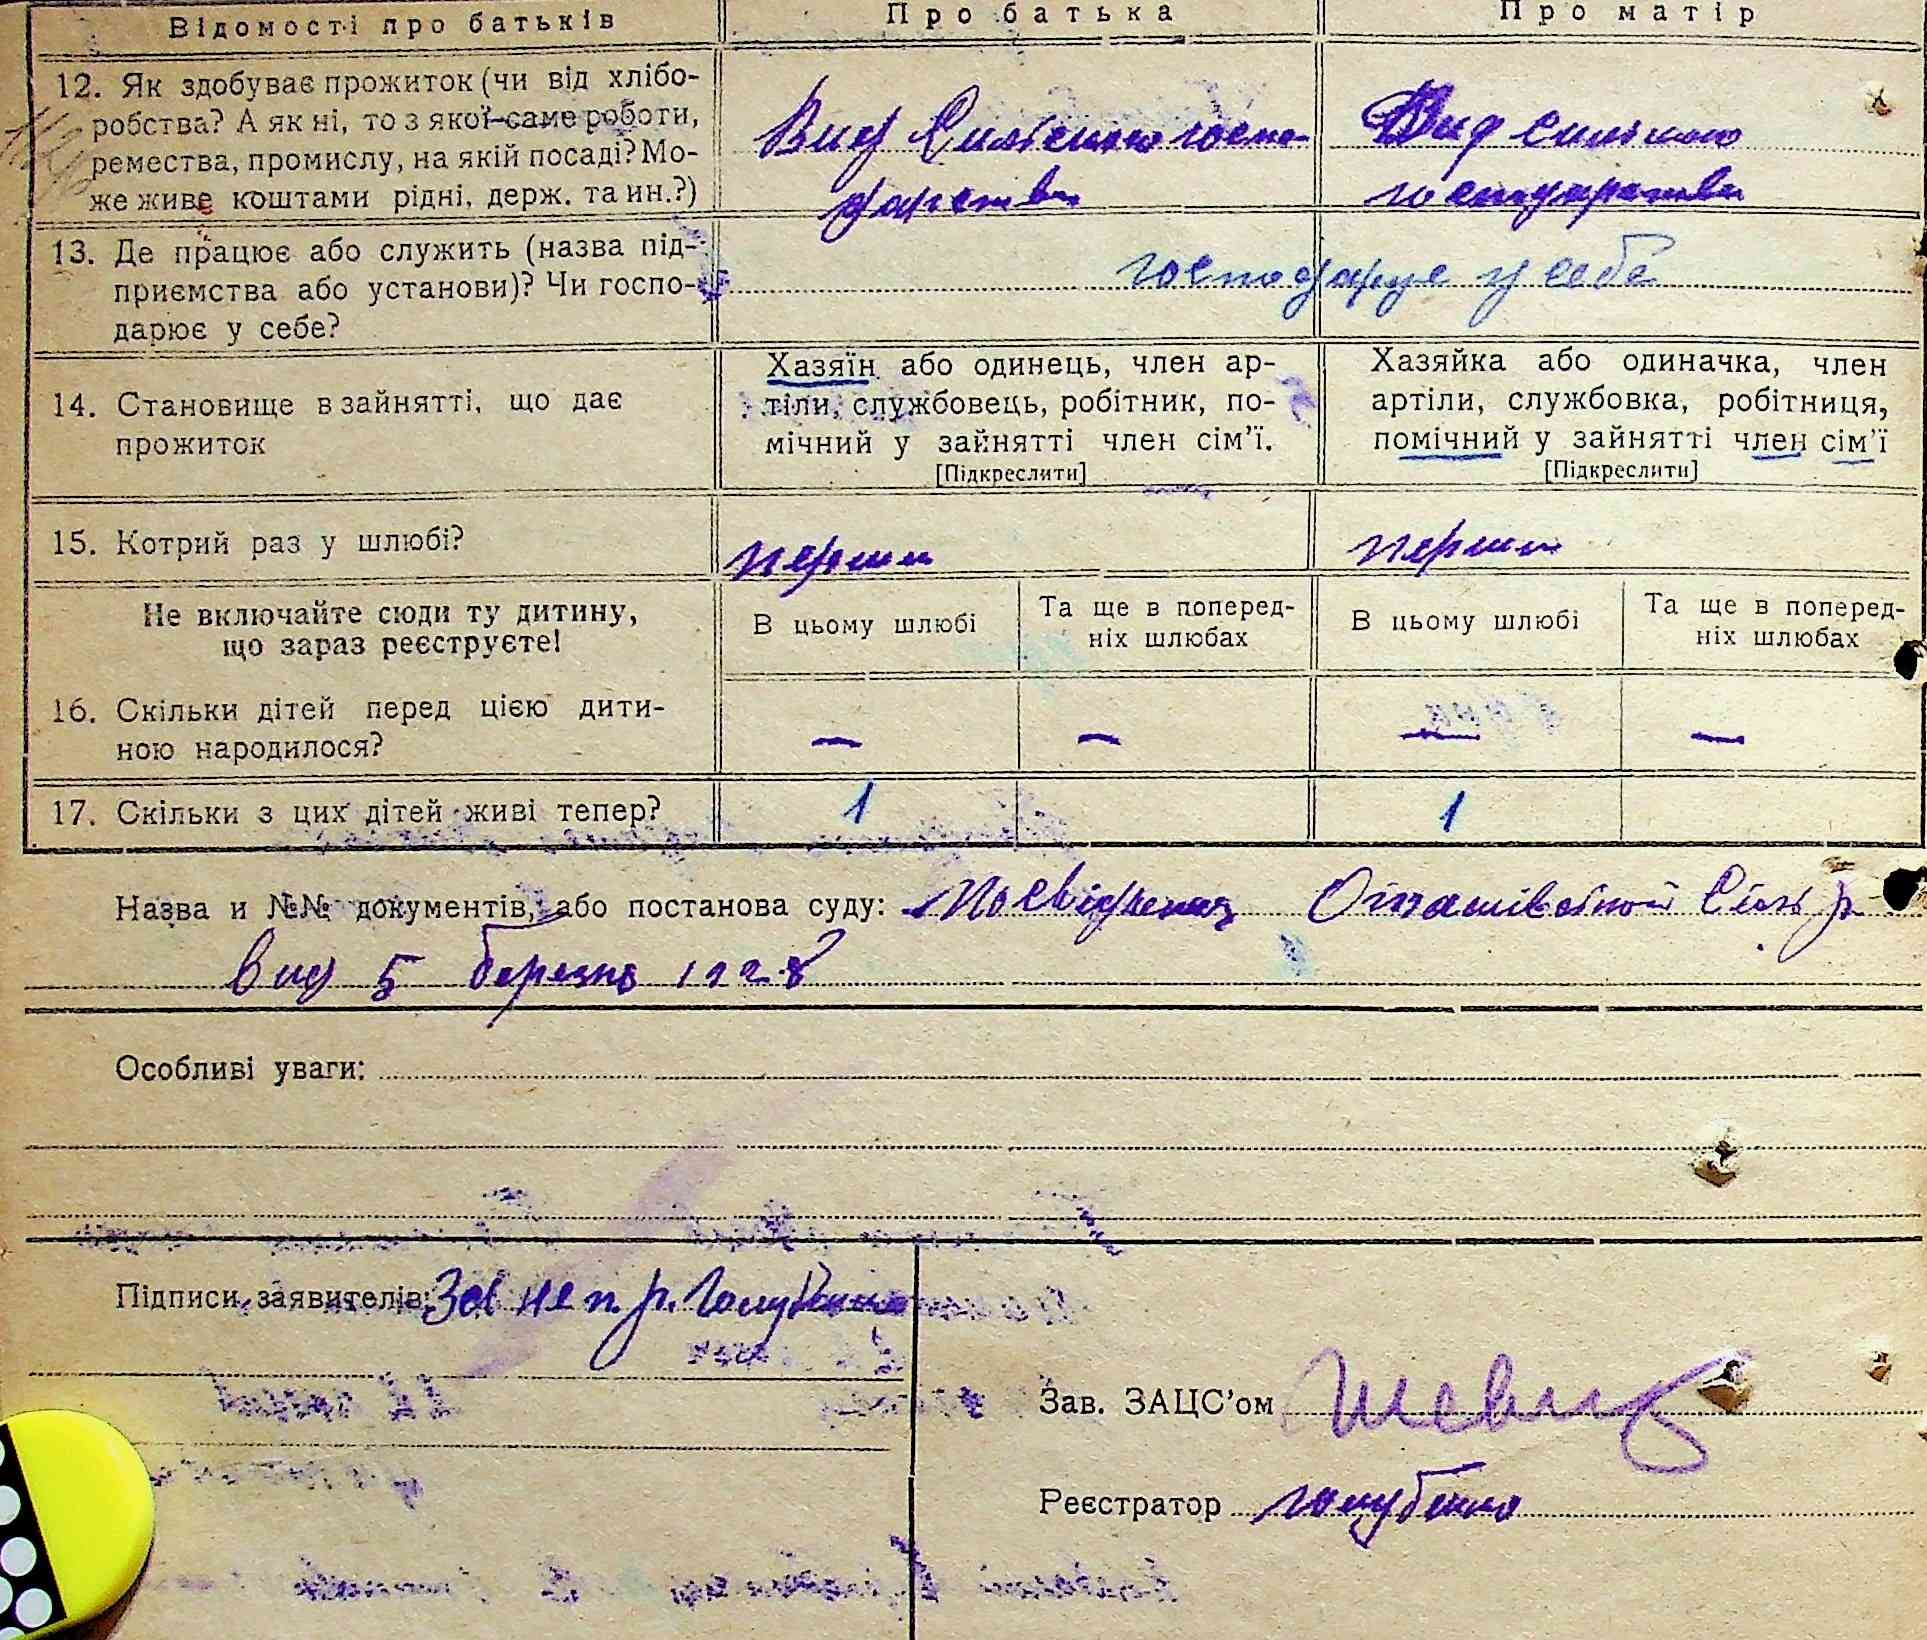 Відомості про батьків
Про батька
Про матір
12. Як здобуває прожиток (чи від хлібо-
робства? А як ні, то з якої саме роботи,
ремества, промислу, на якій посаді? Мо-
же живе коштами рідні, держ. та ин.?)
Вид Сильского госпо-
дарства
Вид сильского
господарства
13. Де працює або служить (назва під-
приємства або установи)? Чи госпо-
дарює у себе?
господарує у себе
14. Становище в зайнятті, що дає
прожиток
Хазяїн або одинець, член ар-
тіли, службовець, робітник, по-
мічний у зайнятті член сім'ї.
[Підкреслити]
Хазяйка або одиначка, член
артіли, службовка, робітниця,
помічний у зайнятті член сім'ї
[Підкреслити]
15. Котрий раз у шлюбі?
перший
перший
Не включайте сюди ту дитину,
що зараз реєструєте!
В цьому шлюбі
Та ще в поперед-
ніх шлюбах
В цьому шлюбі
Та ще в поперед-
ніх шлюбах
16. Скільки дітей перед цією дити-
ною народилося?
— — — —
17. Скільки з цих дітей живі тепер?
1 1
Назва и №№ документів, або постанова суду: Посвідчення Сільр.
вид 5 березня 1928
Особливі уваги:
Підписи заявителів: За неп. р. Голубенко
Зав. ЗАЦС'ом
Реєстратор Голубенко